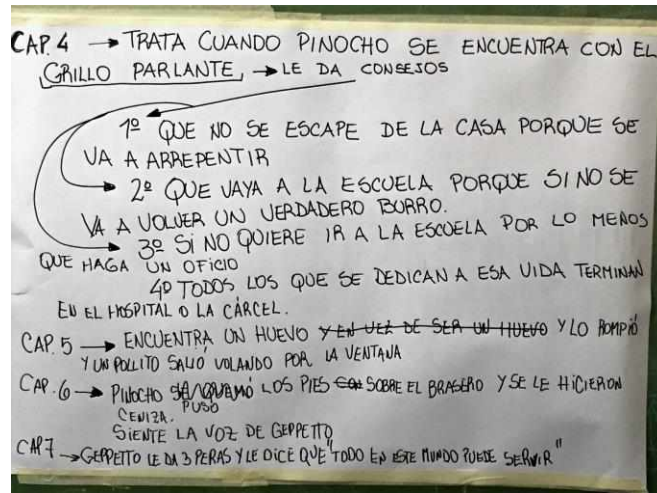 CAP. 4 → TRATA CUANDO PINOCHO SE ENCUENTRA CON EL
GRILLO PARLANTE, → LE DA CONSEJOS
1º QUE NO SE ESCAPE DE LA CASA PORQUE SE
VA A ARREPENTIR
2º QUE VAYA A LA ESCUELA PORQUE SI NO SE
VA A VOLVER UN VERDADERO BURRO.
3º SI NO QUIERE IR A LA ESCUELA POR LO MENOS
QUE HAGA UN OFICIO
4º TODOS LOS QUE SE DEDICAN A ESA VIDA TERMINAN
EN EL HOSPITAL O LA CÁRCEL.
CAP. 5 → ENCUENTRA UN HUEVO Y EN VEZ DE SER UN HUEVO Y LO ROMPIÓ
Y UN POLLITO SALIÓ VOLANDO POR LA VENTANA
CAP. 6 → PINOCHO SE QUEMÓ LOS PIES CON SOBRE EL BRASERO Y SE LE HICIERON
PUSO
CENIZA.
SIENTE LA VOZ DE GEPPETTO
CAP 7 → GEPPETTO LE DA 3 PERAS Y LE DICE QUE "TODO EN ESTE MUNDO PUEDE SERVIR"